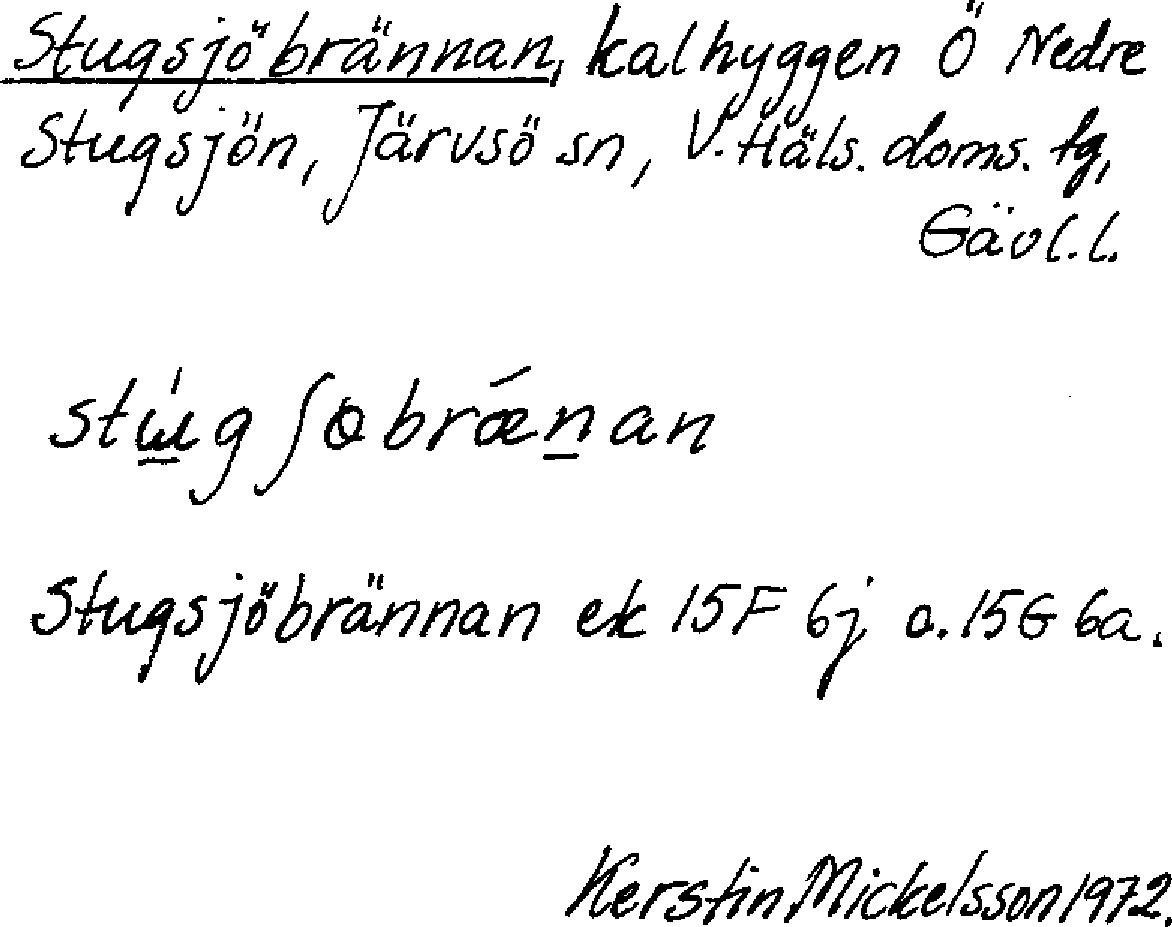 Stugsjöbrännan, kalhyggen Ö Nedre
Stugsjön, Järvsö sn, V. Häls. doms. tg,
Gävl. l.
stɯ́gʃɵbrǽnan
Stugsjöbrännan ek 15F 6j o. 15G 6a.
Kerstin Mickelsson 1972.